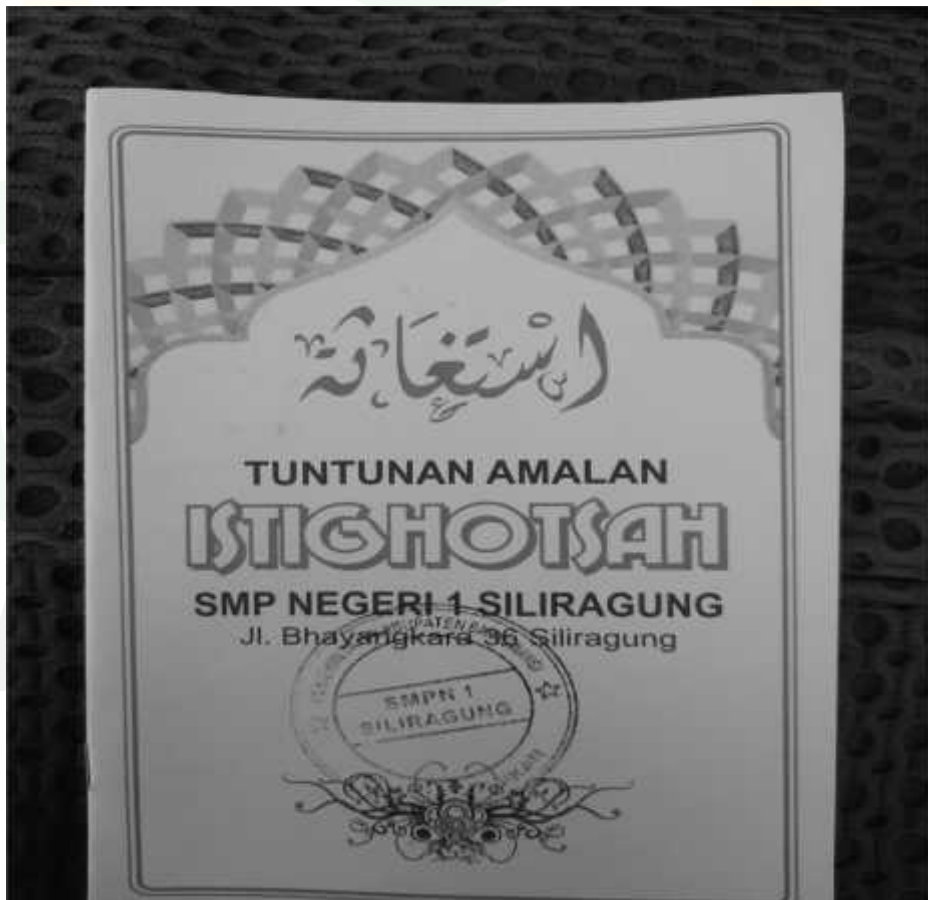 اسْتِغَاثَة
TUNTUNAN AMALAN
ISTIGHOTSAH
SMP NEGERI 1 SILIRAGUNG
Jl. Bhayangkara 36 Siliragung
SMPN 1
SILIRAGUNG